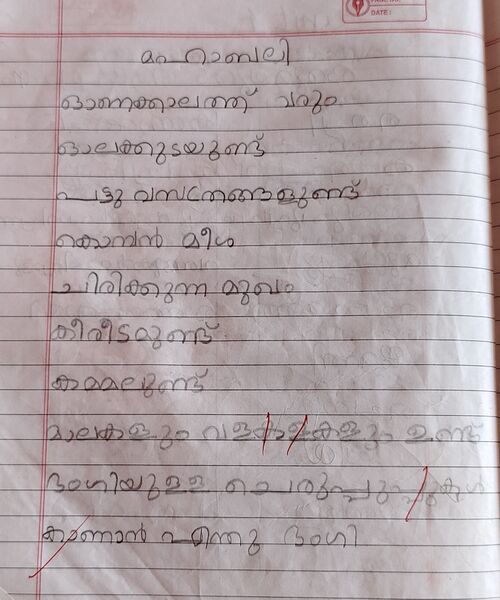 DATE:
മഹാബലി
ഓണക്കാലത്ത് വരും
ഓലക്കുടയുണ്ട്
പട്ടു വസ്ത്രങ്ങളുണ്ട്
കൊമ്പൻ മീശ
ചിരിക്കുന്ന മുഖം
കിരീടമുണ്ട്
കമ്മലുണ്ട്
മാലകളും വളകളും ഉണ്ട്
ഭംഗിയുള്ള ചെരുപ്പുകൾ
കാണാൻ എന്തു ഭംഗി